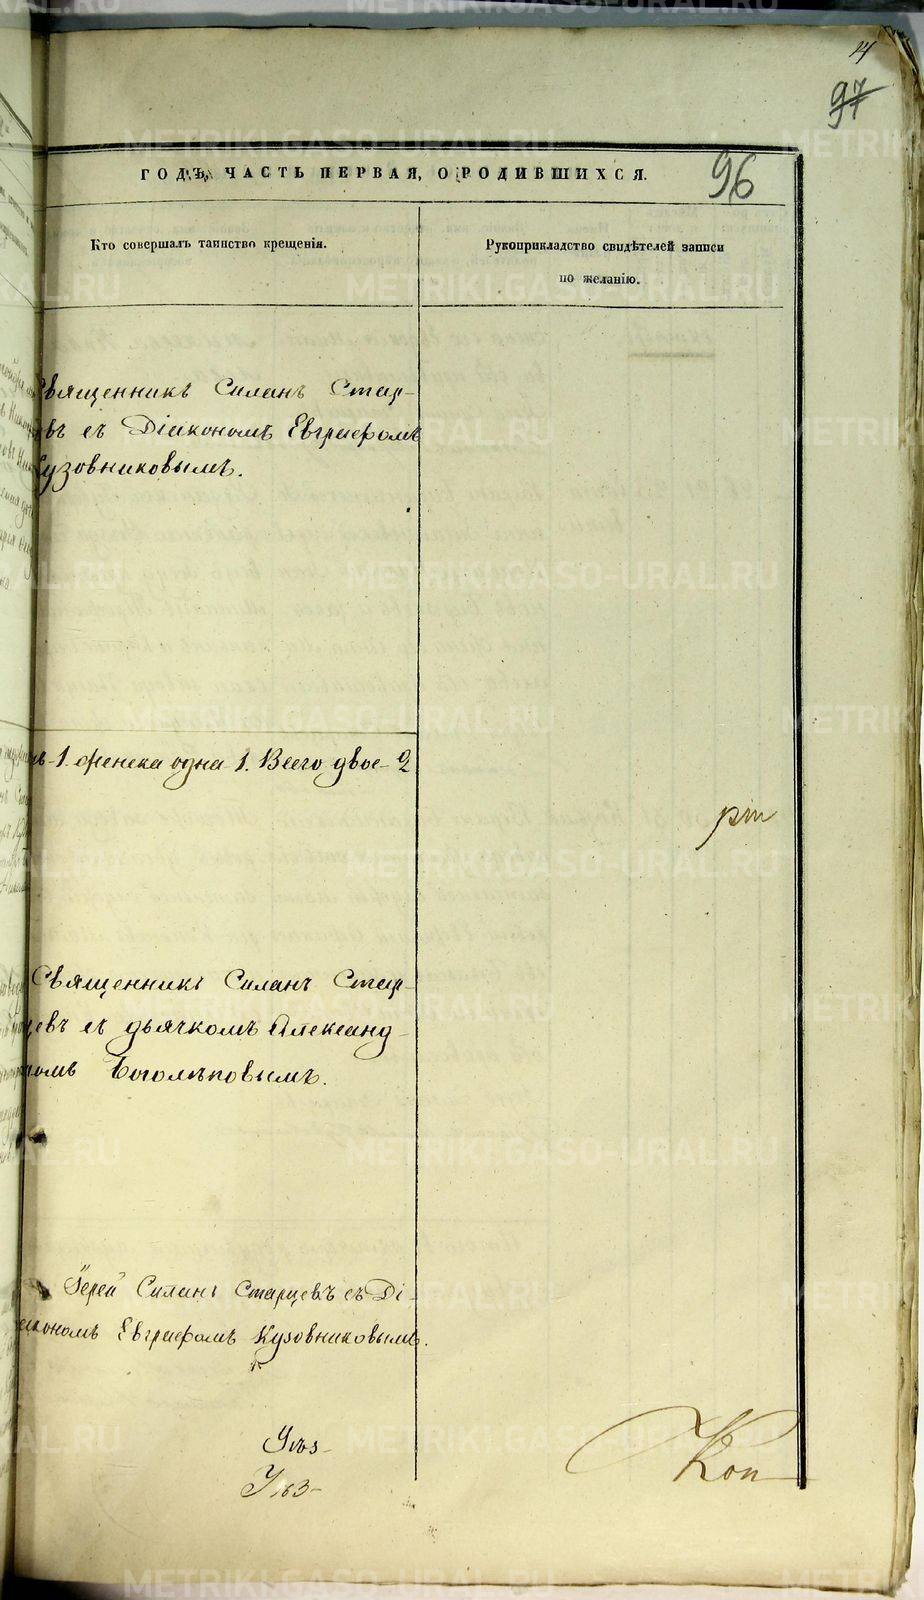 97
96
ГОДЪ, ЧАСТЬ ПЕРВАЯ, О РОДИВШИХСЯ.
Кто совершалъ таинство крещенія.
Рукоприкладство свидѣтелей записи
по желанію.
Священникъ Силанъ Стар-
въ съ Діакономъ Евграфомъ
Кузовниковымъ.
1. женска одна 1. Всего двое 2
Священникъ Силанъ Стар-
цевъ съ дьячкомъ Александ-
ромъ Боголѣповымъ.
Іерей Силанъ Старцевъ съ Ді-
акономъ Евграфомъ Кузовниковымъ.
METRIKI.GASO-URAL.RU